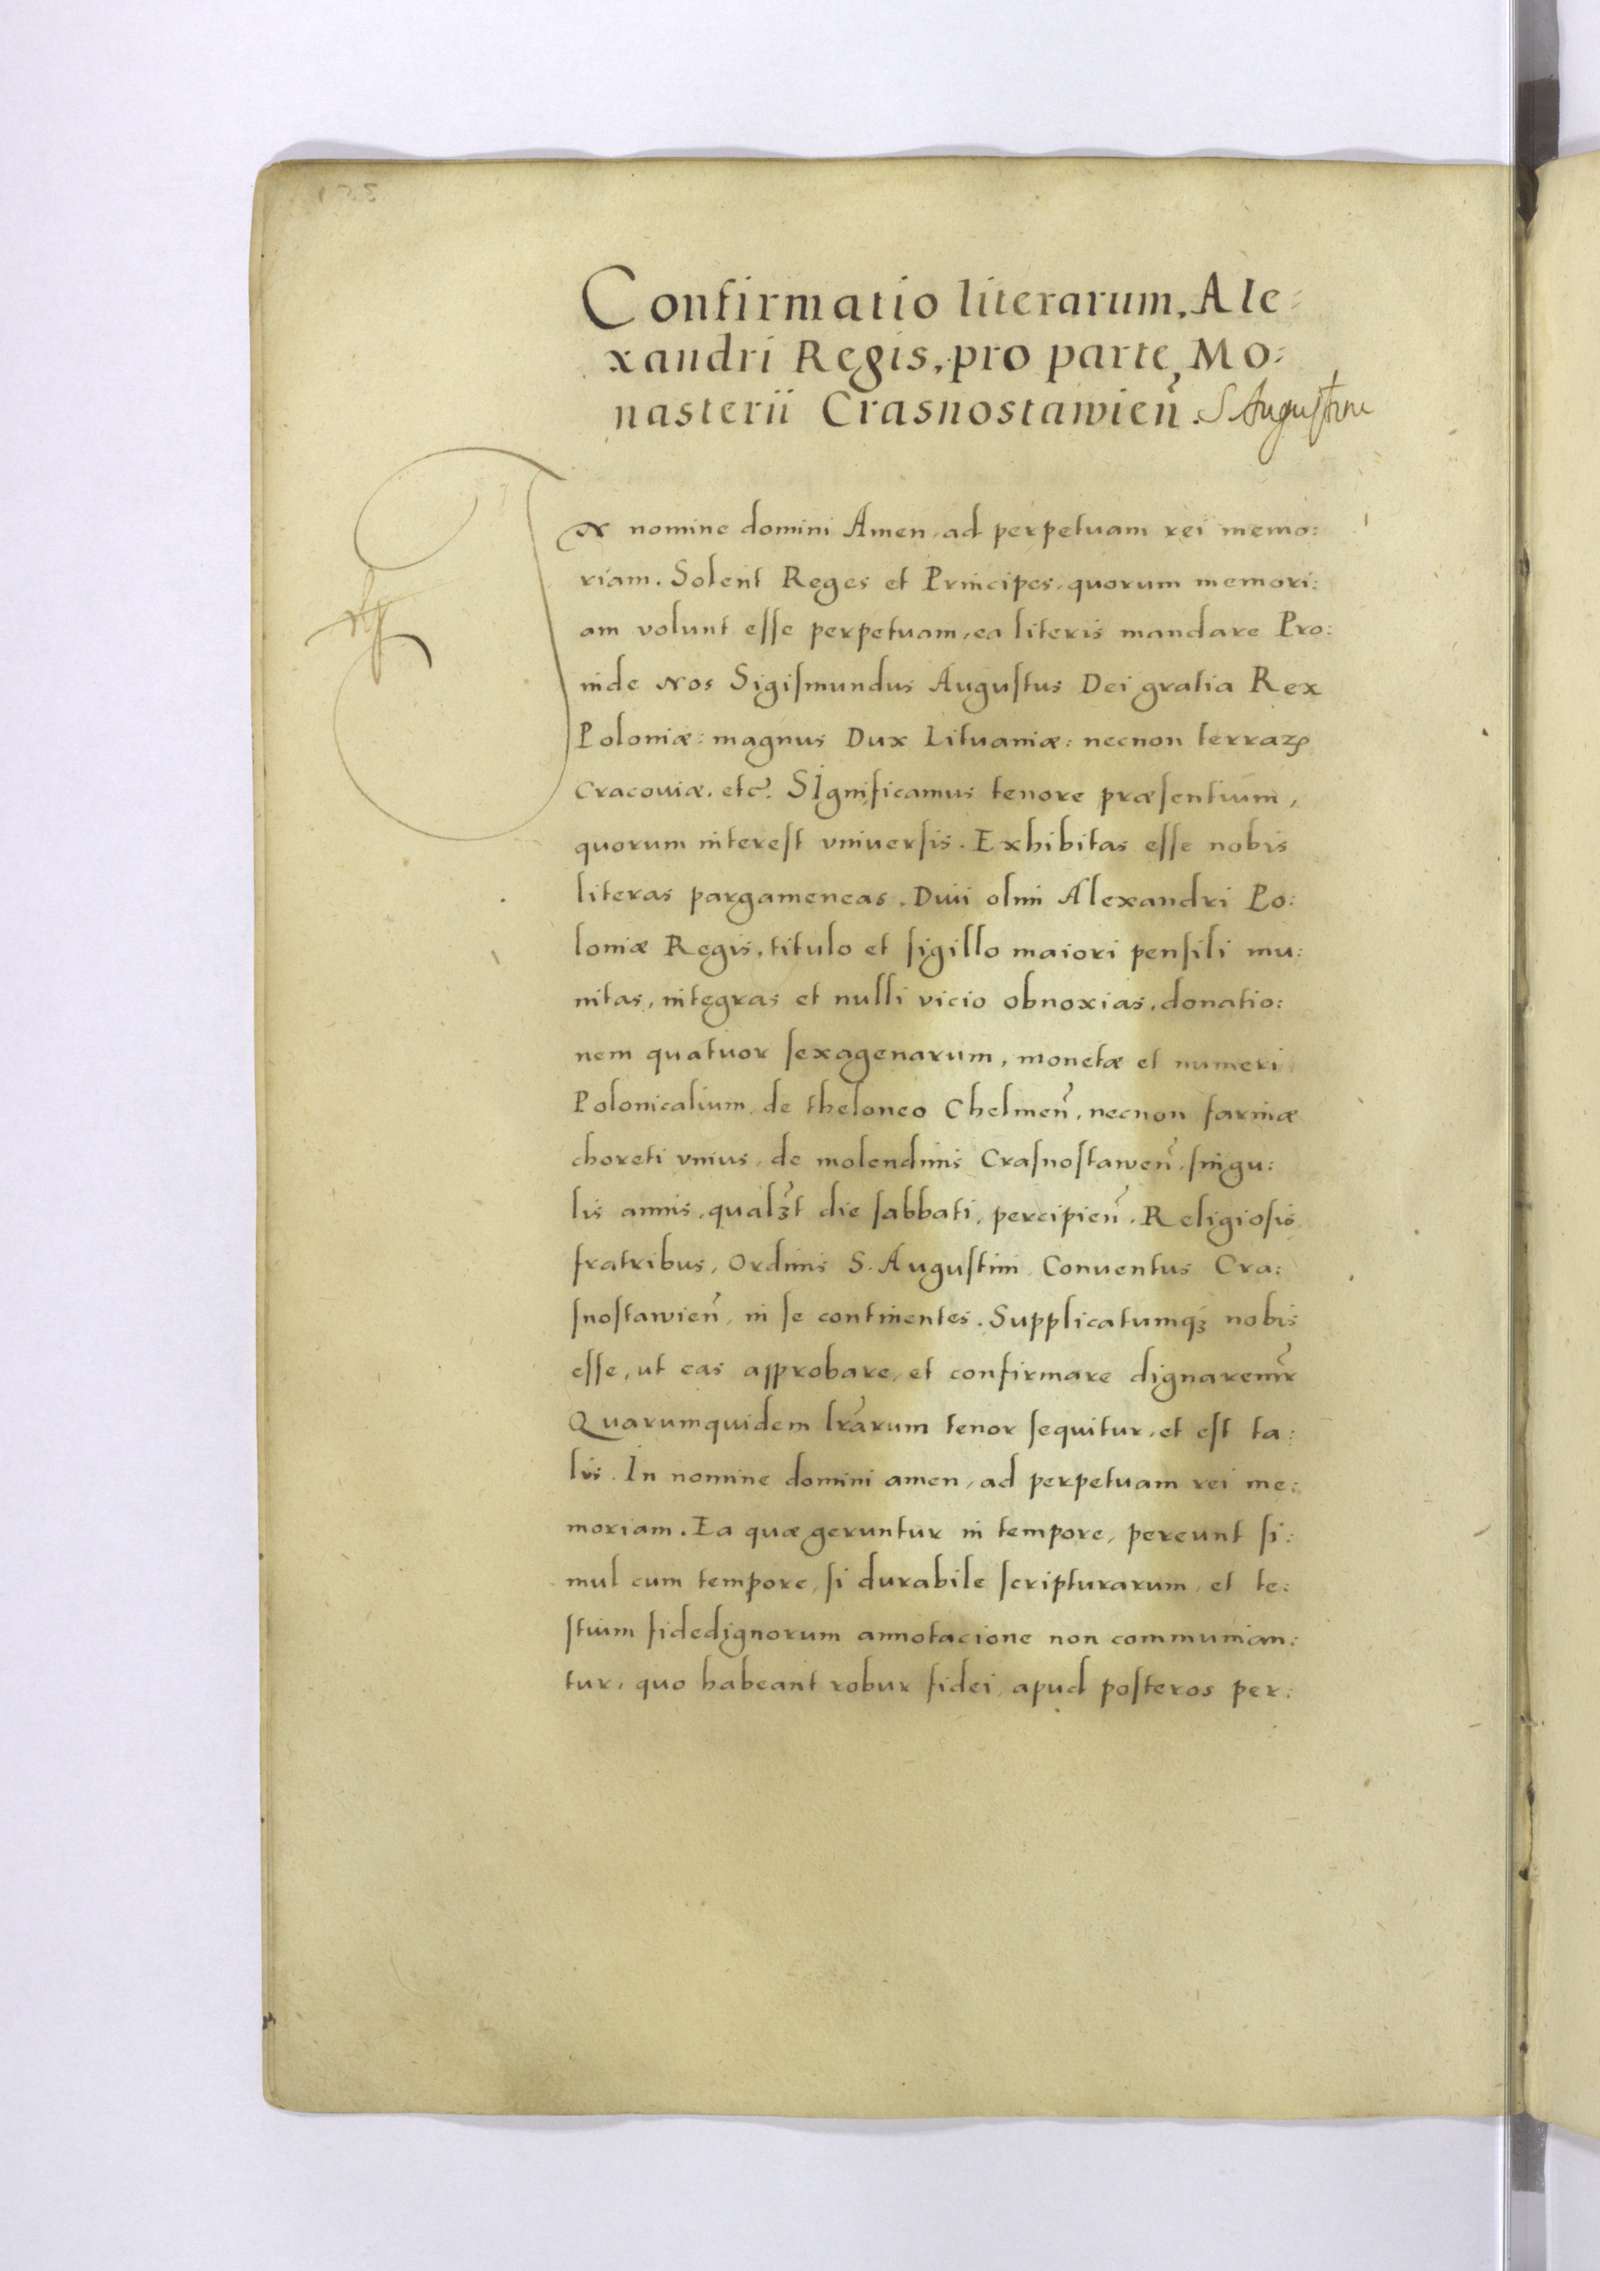 Confirmatio literarum, Ale:
xandri Regis, pro parte Mo:
nasterii Crasnostawien̄. S Augustini
IN nomine domini Amen, ad perpetuam rei memo:
riam. Solent Reges et Principes, quorum memori:
am volunt eſſe perpetuam, ea literis mandare Pro:
inde Nos Sigiſmundus Auguſtus Dei gratia Rex
Poloniæ: magnus Dux Lituaniæ: necnon terraꝝ
Cracouiæ. etc̄. SIgnificamus tenore præſentium,
quorum intereſt vniuerſis. Exhibitas eſſe nobis
literas pargameneas. Diui olim Alexandri Po:
loniæ Regis, titulo et ſigillo maiori penſili mu:
nitas, integras et nulli vicio obnoxias, donatio:
nem quatuor ſexagenarum, monetæ et numeri
Polonicalium, de theloneo Chelmen̄, necnon farinæ
choreti vnius, de molendinis Craſnoſtawen̄, ſingu:
lis annis, qualꝫt die ſabbati, percipien̄. Religioſis
fratribus, Ordinis S. Auguſtini Conuentus Cra:
ſnoſtawien̄, in ſe continentes. Supplicatumqꝫ nobis
eſſe, ut eas approbare, et confirmare dignarem̄r
Quarumquidem lr̄arum tenor ſequitur, et eſt ta:
lis. In nomine domini amen, ad perpetuam rei me:
moriam. Ea quæ geruntur in tempore, pereunt ſi:
mul cum tempore, ſi durabile ſcripturarum, et te:
ſtium fidedignorum annotacione non communian:
tur, quo habeant robur fidei, apud poſteros per: